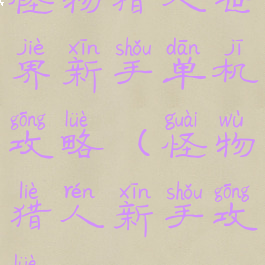 怪物猎人世
jiè xīn shǒu dān jī
界新手单机
gōng lüè guài wù
攻略(怪物
liè rén xīn shǒu gōng
猎人新手攻
lüè